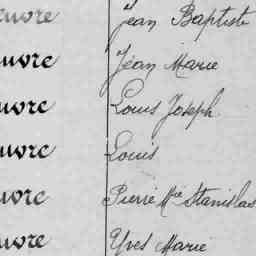 euvre Jean Baptiste
euvre Jean Marie
euvre Louis Joseph
euvre Louis
euvre Pierre Mie Stanislas
euvre Yves Marie